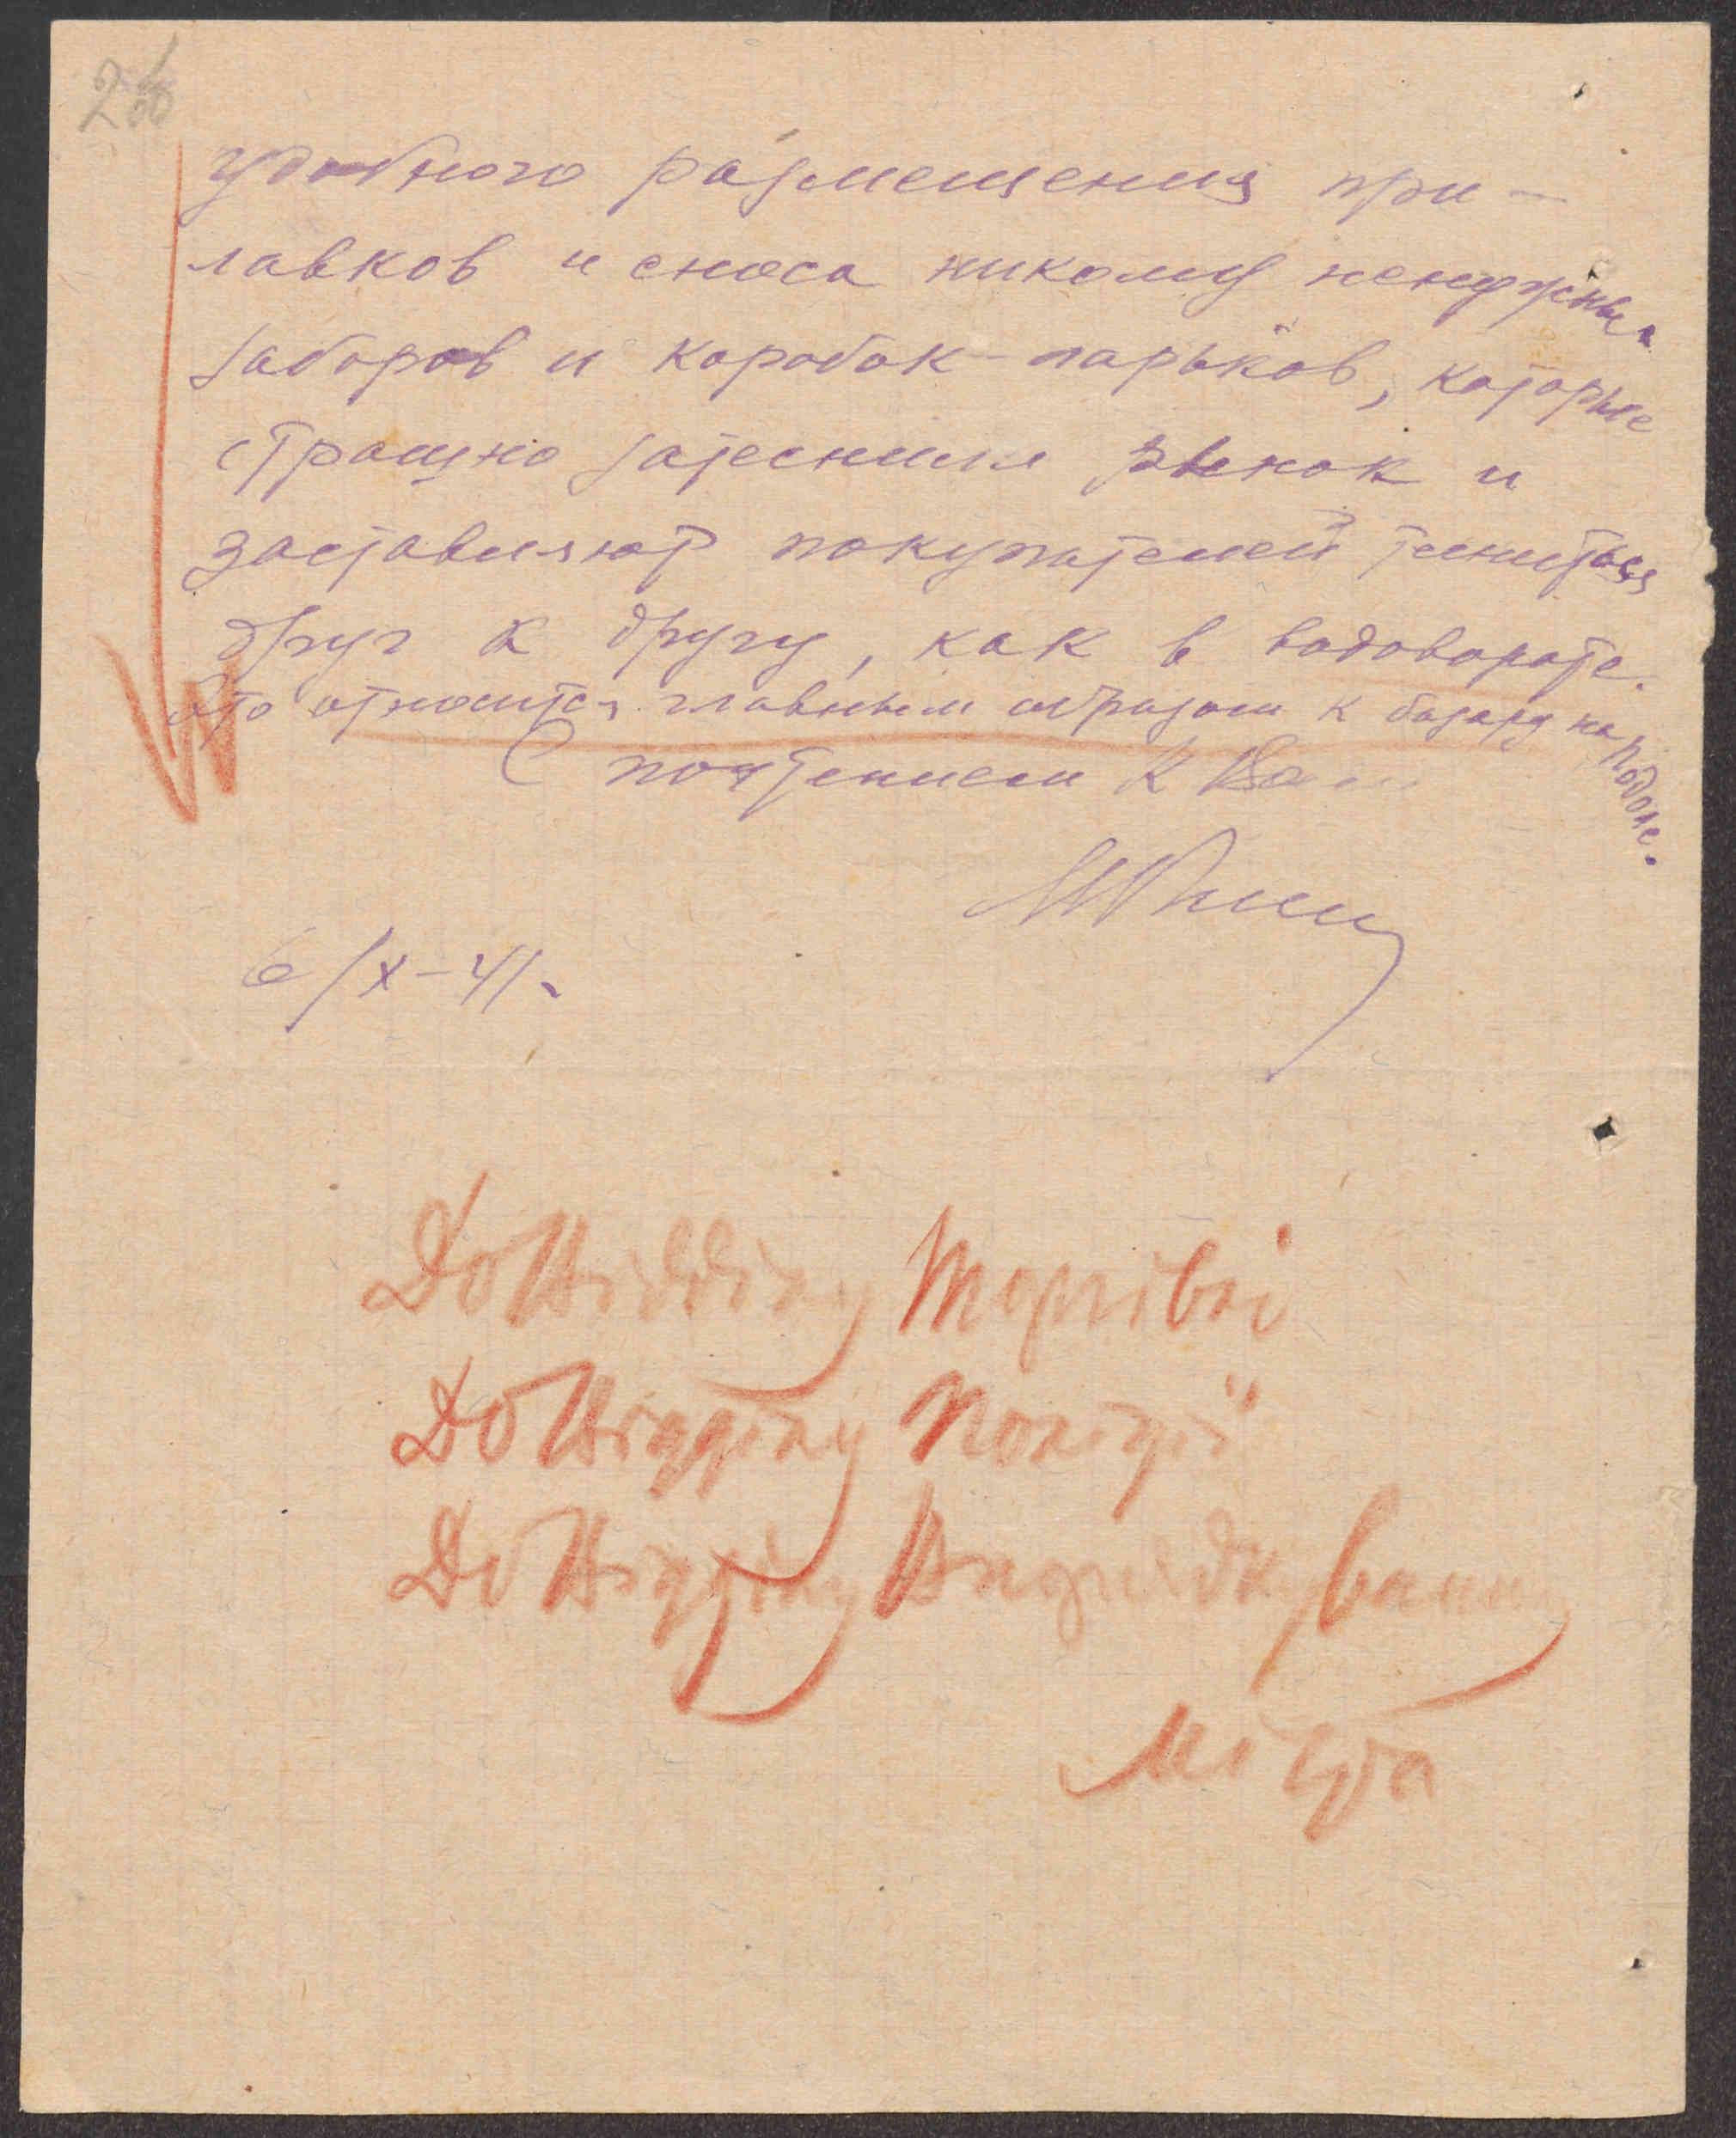 удобного размещения при-
лавков и сноса никому ненужных
заборов и коробок-ларьков, которые
страшно затеснили рынок и
заставляют покупателей тесниться
друг к другу, как в водовороте.
Это относится главным образом к базару на Подоле.
С почтением к Вам
6/X-41.
До Відділу Торгівлі
До Відділу Поліції
До Відділу Впорядкування
Міста